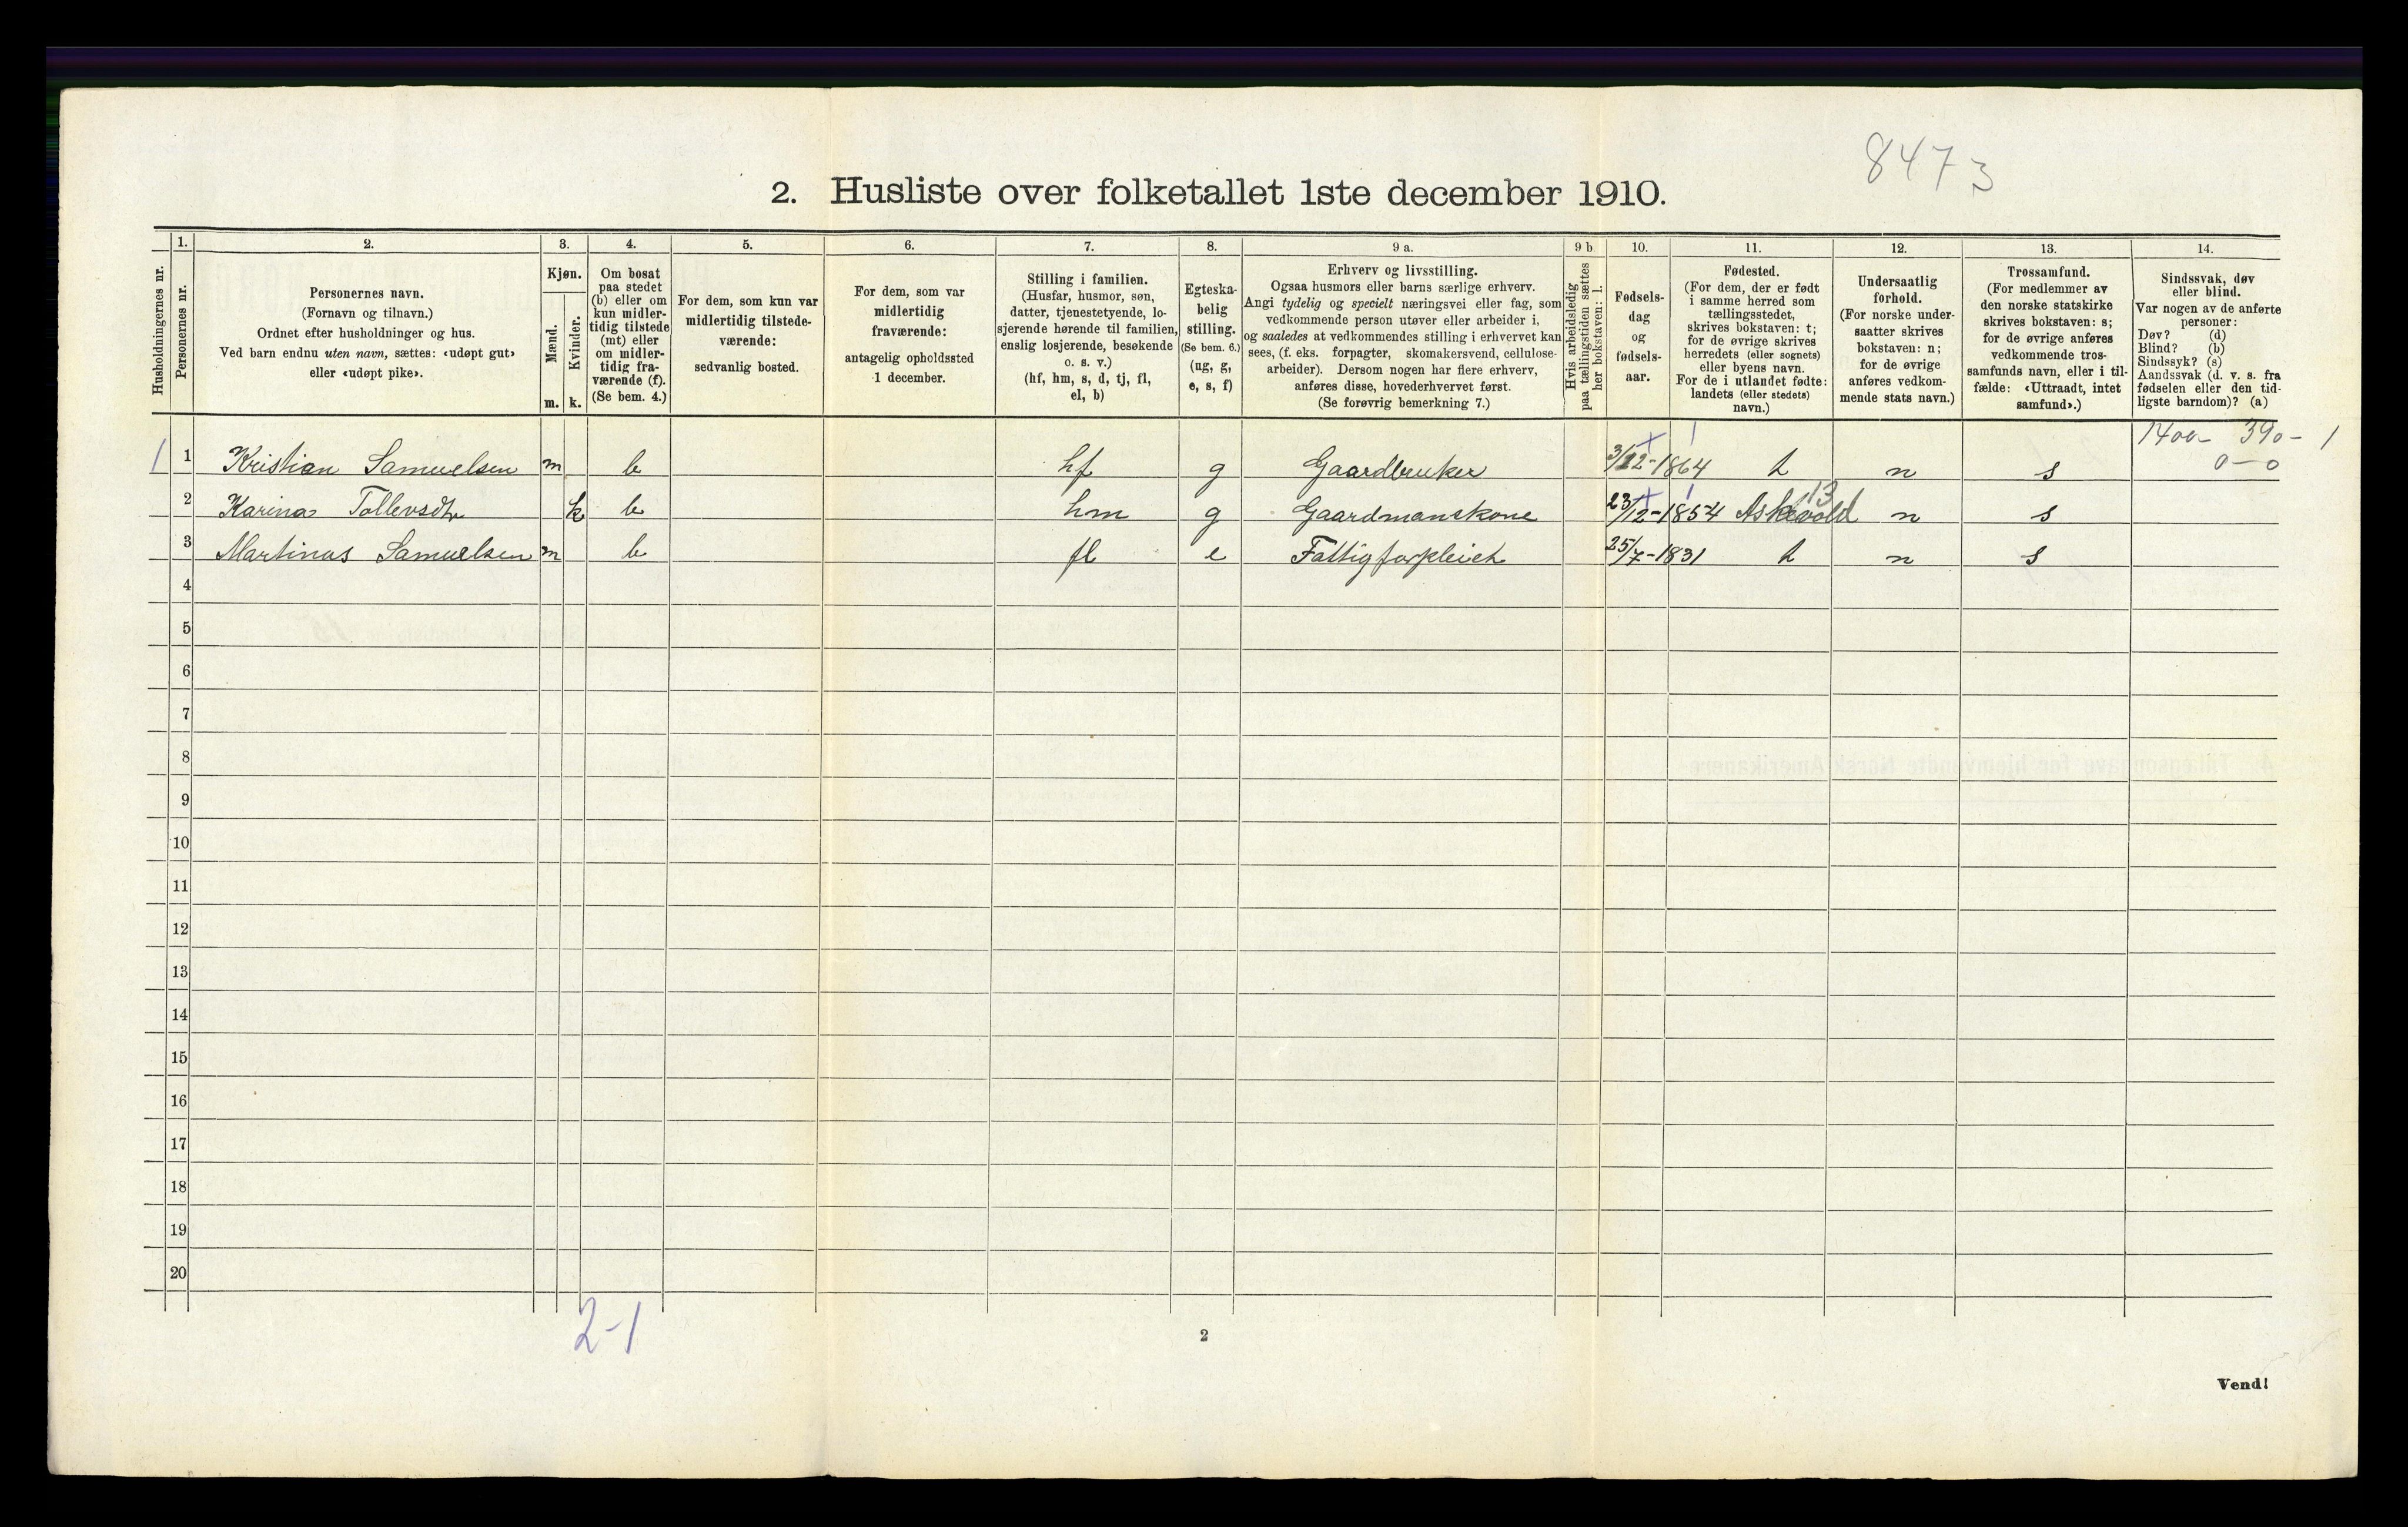 8473
2. Husliste over folketallet 1ste december 1910.
Husholdningernes nr.
1.
Personernes nr.
2.
Personernes navn.
(Fornavn og tilnavn.)
Ordnet efter husholdninger og hus.
Ved barn endnu uten navn, sættes: «udøpt gut»
eller «udøpt pike».
3.
Kjøn.
Mænd.
Kvinder.
m. k.
4.
Om bosat
paa stedet
(b) eller om
kun midler-
tidig tilstede
(mt) eller
om midler-
tidig fra-
værende (f).
(Se bem. 4.)
5.
For dem, som kun var
midlertidig tilstede-
værende:
sedvanlig bosted.
6.
For dem, som var
midlertidig
fraværende:
antagelig opholdssted
1 december.
7.
Stilling i familien.
(Husfar, husmor, søn,
datter, tjenestetyende, lo-
sjerende hørende til familien,
enslig losjerende, besøkende
o. s. v.)
(hf, hm, s, d, tj, fl,
el, b)
8.
Egteska-
belig
stilling.
(Se bem. 6.)
(ug, g,
e, s, f)
9 a.
Erhverv og livsstilling.
Ogsaa husmors eller barns særlige erhverv.
Angi tydelig og specielt næringsvei eller fag, som
vedkommende person utøver eller arbeider i,
og saaledes at vedkommendes stilling i erhvervet kan
sees, (f. eks. forpagter, skomakersvend, cellulose-
arbeider). Dersom nogen har flere erhverv,
anføres disse, hovederhvervet først.
(Se forøvrig bemerkning 7.)
9 b
Hvis arbeidsledig
paa tællingstiden sættes
her bokstaven: l.
10.
Fødsels-
dag
og
fødsels-
aar.
11.
Fødested.
(For dem, der er født
i samme herred som
tællingsstedet,
skrives bokstaven: t;
for de øvrige skrives
herredets (eller sognets)
eller byens navn.
For de i utlandet fødte:
landets (eller stedets)
navn.)
12.
Undersaatlig
forhold.
(For norske under-
saatter skrives
bokstaven: n;
for de øvrige
anføres vedkom-
mende stats navn.)
13.
Trossamfund.
(For medlemmer av
den norske statskirke
skrives bokstaven: s;
for de øvrige anføres
vedkommende tros-
samfunds navn, eller i til-
fælde: «Uttraadt, intet
samfund».)
14.
Sindssvak, døv
eller blind.
Var nogen av de anførte
personer:
Døv? (d)
Blind? (b)
Sindssyk? (s)
Aandssvak (d. v. s. fra
fødselen eller den tid-
ligste barndom)? (a)
1400- 390- 1
0-0
1 1 Kristian Samuelsen m b hf g Gaardbruker 3/12-1864 t n s
13
2 Karina Tollevsdtr k b hm g Gaardmanskone 23/12-1854 Askevold n s
3 Martinus Samuelsen m b fl e Fattigforpleiet 25/7-1831 t n s
4
5
6
7
8
9
10
11
12
13
14
15
16
17
18
19
20
2-1
2
Vend!